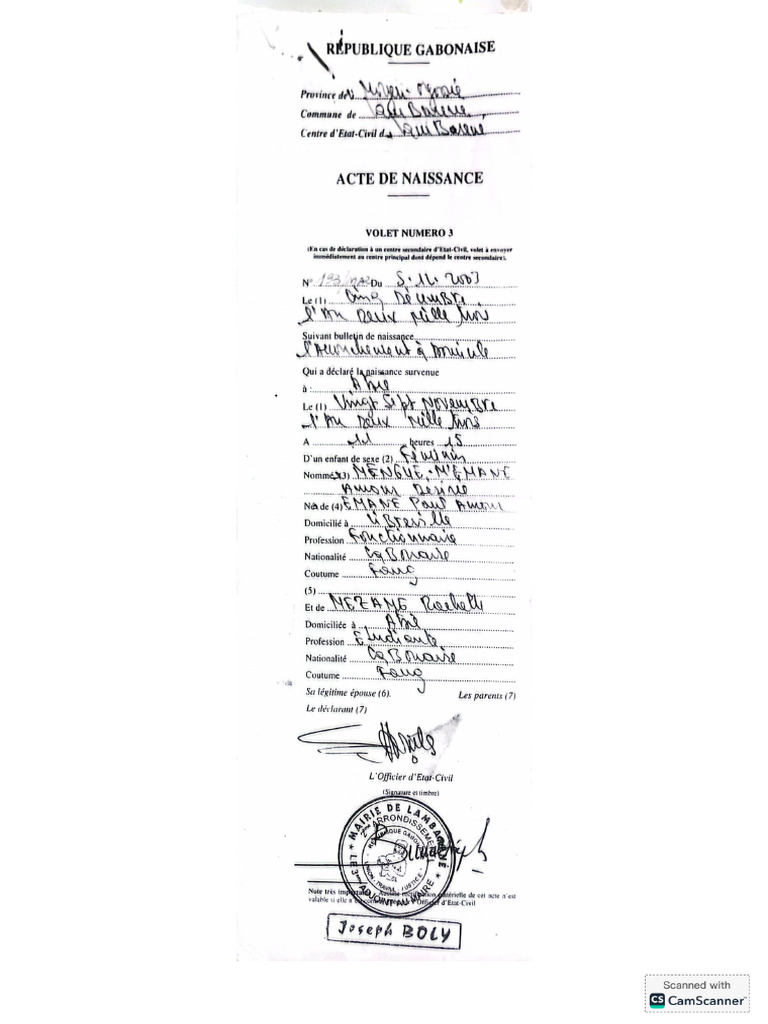 RÉPUBLIQUE GABONAISE
Province de Moyen-Ogooué
Commune de Lambaréné
Centre d'Etat-Civil d Lambaréné
ACTE DE NAISSANCE
VOLET NUMERO 3
(En cas de déclaration à un centre secondaire d'Etat-Civil, volet à envoyer
immédiatement au centre principal dont dépend le centre secondaire).
N° 193 Du 5.12.2003
Le (1) Cinq Décembre
l'An Deux Mille Trois
Suivant bulletin de naissance
l'Accouchement à Domicile
Qui a déclaré la naissance survenue
à :
Le (1) Vingt Sept Novembre
l'An Deux Mille Trois
A 11 heures 15
D'un enfant de sexe (2) Féminin
Nommé (3) MENGUE-M'EMANE
Amour Désirée
Né de (4) EMANE Paul Amour
Domicilié à Libreville
Profession Fonctionnaire
Nationalité Gabonaise
Coutume Fang
(5)
Et de MEZANE Rachelle
Domiciliée à
Profession Etudiante
Nationalité Gabonaise
Coutume Fang
Sa légitime épouse (6). Les parents (7)
Le déclarant (7)
L'Officier d'Etat-Civil
(Signature et timbre)
MAIRIE DE LAMBARÉNÉ
2ème ARRONDISSEMENT
REPUBLIQUE GABONAISE
UNION - TRAVAIL - JUSTICE
LE 3ème ADJOINT AU MAIRE
Note très importante matérielle de cet acte n'est
valable si elle Officier d'Etat-Civil
Joseph BOLY
Scanned with
CS CamScanner